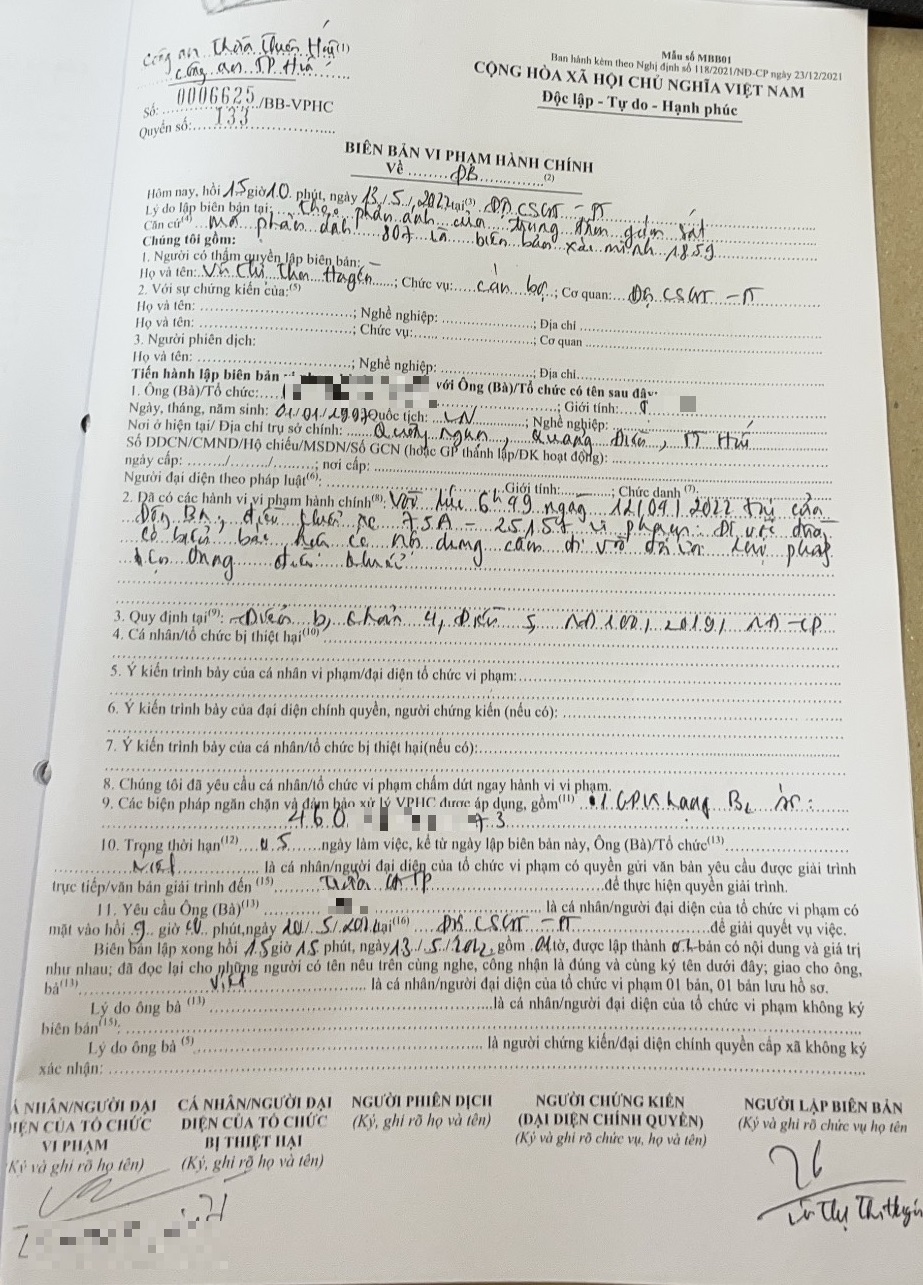 Công an Thừa Thiên Huế (1)
Công an TP Huế
Số: 0006625/BB-VPHC
Quyển số: 133
Mẫu số MBB01
Ban hành kèm theo Nghị định số 118/2021/NĐ-CP ngày 23/12/2021
CỘNG HÒA XÃ HỘI CHỦ NGHĨA VIỆT NAM
Độc lập - Tự do - Hạnh phúc
BIÊN BẢN VI PHẠM HÀNH CHÍNH
Về ĐB (2)
Hôm nay, hồi 15 giờ 10 phút, ngày 13/5/2022 tại (3) Đội CSGT - TT
Lý do lập biên bản tại: Theo phản ánh của trung tâm giám sát
Căn cứ (4) mã phản ánh 807 là biên bản xác minh 1859
Chúng tôi gồm:
1. Người có thẩm quyền lập biên bản:
Họ và tên: ; Chức vụ: cán bộ ; Cơ quan: Đội CSGT - TT
2. Với sự chứng kiến của: (5)
Họ và tên: ; Nghề nghiệp: ; Địa chỉ
Họ và tên: ; Chức vụ: ; Cơ quan
3. Người phiên dịch:
Họ và tên: ; Nghề nghiệp: ; Địa chỉ
Tiến hành lập biên bản với Ông (Bà)/Tổ chức có tên sau đây:
1. Ông (Bà)/Tổ chức: ; Giới tính:
Ngày, tháng, năm sinh: 01/01/ Quốc tịch: VN ; Nghề nghiệp:
Nơi ở hiện tại/ Địa chỉ trụ sở chính: Quảng Ngạn, Quảng Điền, TT Huế
Số DDCN/CMND/Hộ chiếu/MSDN/Số GCN (hoặc GP thành lập/ĐK hoạt động):
ngày cấp: / / ; nơi cấp:
Người đại diện theo pháp luật (6): Giới tính: ; Chức danh (7):
2. Đã có các hành vi vi phạm hành chính (8): Vào lúc 6h49 ngày 12/04/2022 tại cửa
Đông Ba, điều khiển xe 75A - 25157 vi phạm: Đi vào đường
có biển báo hiệu có nội dung cấm đi vào đối với loại phương
tiện đang điều khiển
3. Quy định tại (9): Điểm b, khoản 4, Điều 5, NĐ 100/2019/NĐ-CP
4. Cá nhân/tổ chức bị thiệt hại (10)
5. Ý kiến trình bày của cá nhân vi phạm/đại diện tổ chức vi phạm:
6. Ý kiến trình bày của đại diện chính quyền, người chứng kiến (nếu có):
7. Ý kiến trình bày của cá nhân/tổ chức bị thiệt hại(nếu có):
8. Chúng tôi đã yêu cầu cá nhân/tổ chức vi phạm chấm dứt ngay hành vi vi phạm.
9. Các biện pháp ngăn chặn và đảm bảo xử lý VPHC được áp dụng, gồm (11) 01 GPLX hạng B2 số:
460 73
10. Trong thời hạn (12) 05 ngày làm việc, kể từ ngày lập biên bản này, Ông (Bà)/Tổ chức (13)
là cá nhân/người đại diện của tổ chức vi phạm có quyền gửi văn bản yêu cầu được giải trình
trực tiếp/văn bản giải trình đến (15) CATP để thực hiện quyền giải trình.
11. Yêu cầu Ông (Bà) (13) là cá nhân/người đại diện của tổ chức vi phạm có
mặt vào hồi 9 giờ 00 phút, ngày 20/5/2022 tại (16) Đội CSGT - TT để giải quyết vụ việc.
Biên bản lập xong hồi 15 giờ 15 phút, ngày 13/5/2022, gồm 01 tờ, được lập thành 02 bản có nội dung và giá trị
như nhau; đã đọc lại cho những người có tên nêu trên cùng nghe, công nhận là đúng và cùng ký tên dưới đây; giao cho ông,
bà (13) là cá nhân/người đại diện của tổ chức vi phạm 01 bản, 01 bản lưu hồ sơ.
Lý do ông bà (13) là cá nhân/người đại diện của tổ chức vi phạm không ký
biên bản (15):
Lý do ông bà (5) là người chứng kiến/đại diện chính quyền cấp xã không ký
xác nhận:
CÁ NHÂN/NGƯỜI ĐẠI DIỆN CỦA TỔ CHỨC VI PHẠM
(Ký và ghi rõ họ tên)
CÁ NHÂN/NGƯỜI ĐẠI DIỆN CỦA TỔ CHỨC BỊ THIỆT HẠI
(Ký, ghi rõ họ và tên)
NGƯỜI PHIÊN DỊCH
(Ký, ghi rõ họ và tên)
NGƯỜI CHỨNG KIẾN
(ĐẠI DIỆN CHÍNH QUYỀN)
(Ký và ghi rõ chức vụ, họ và tên)
NGƯỜI LẬP BIÊN BẢN
(Ký và ghi rõ chức vụ họ tên